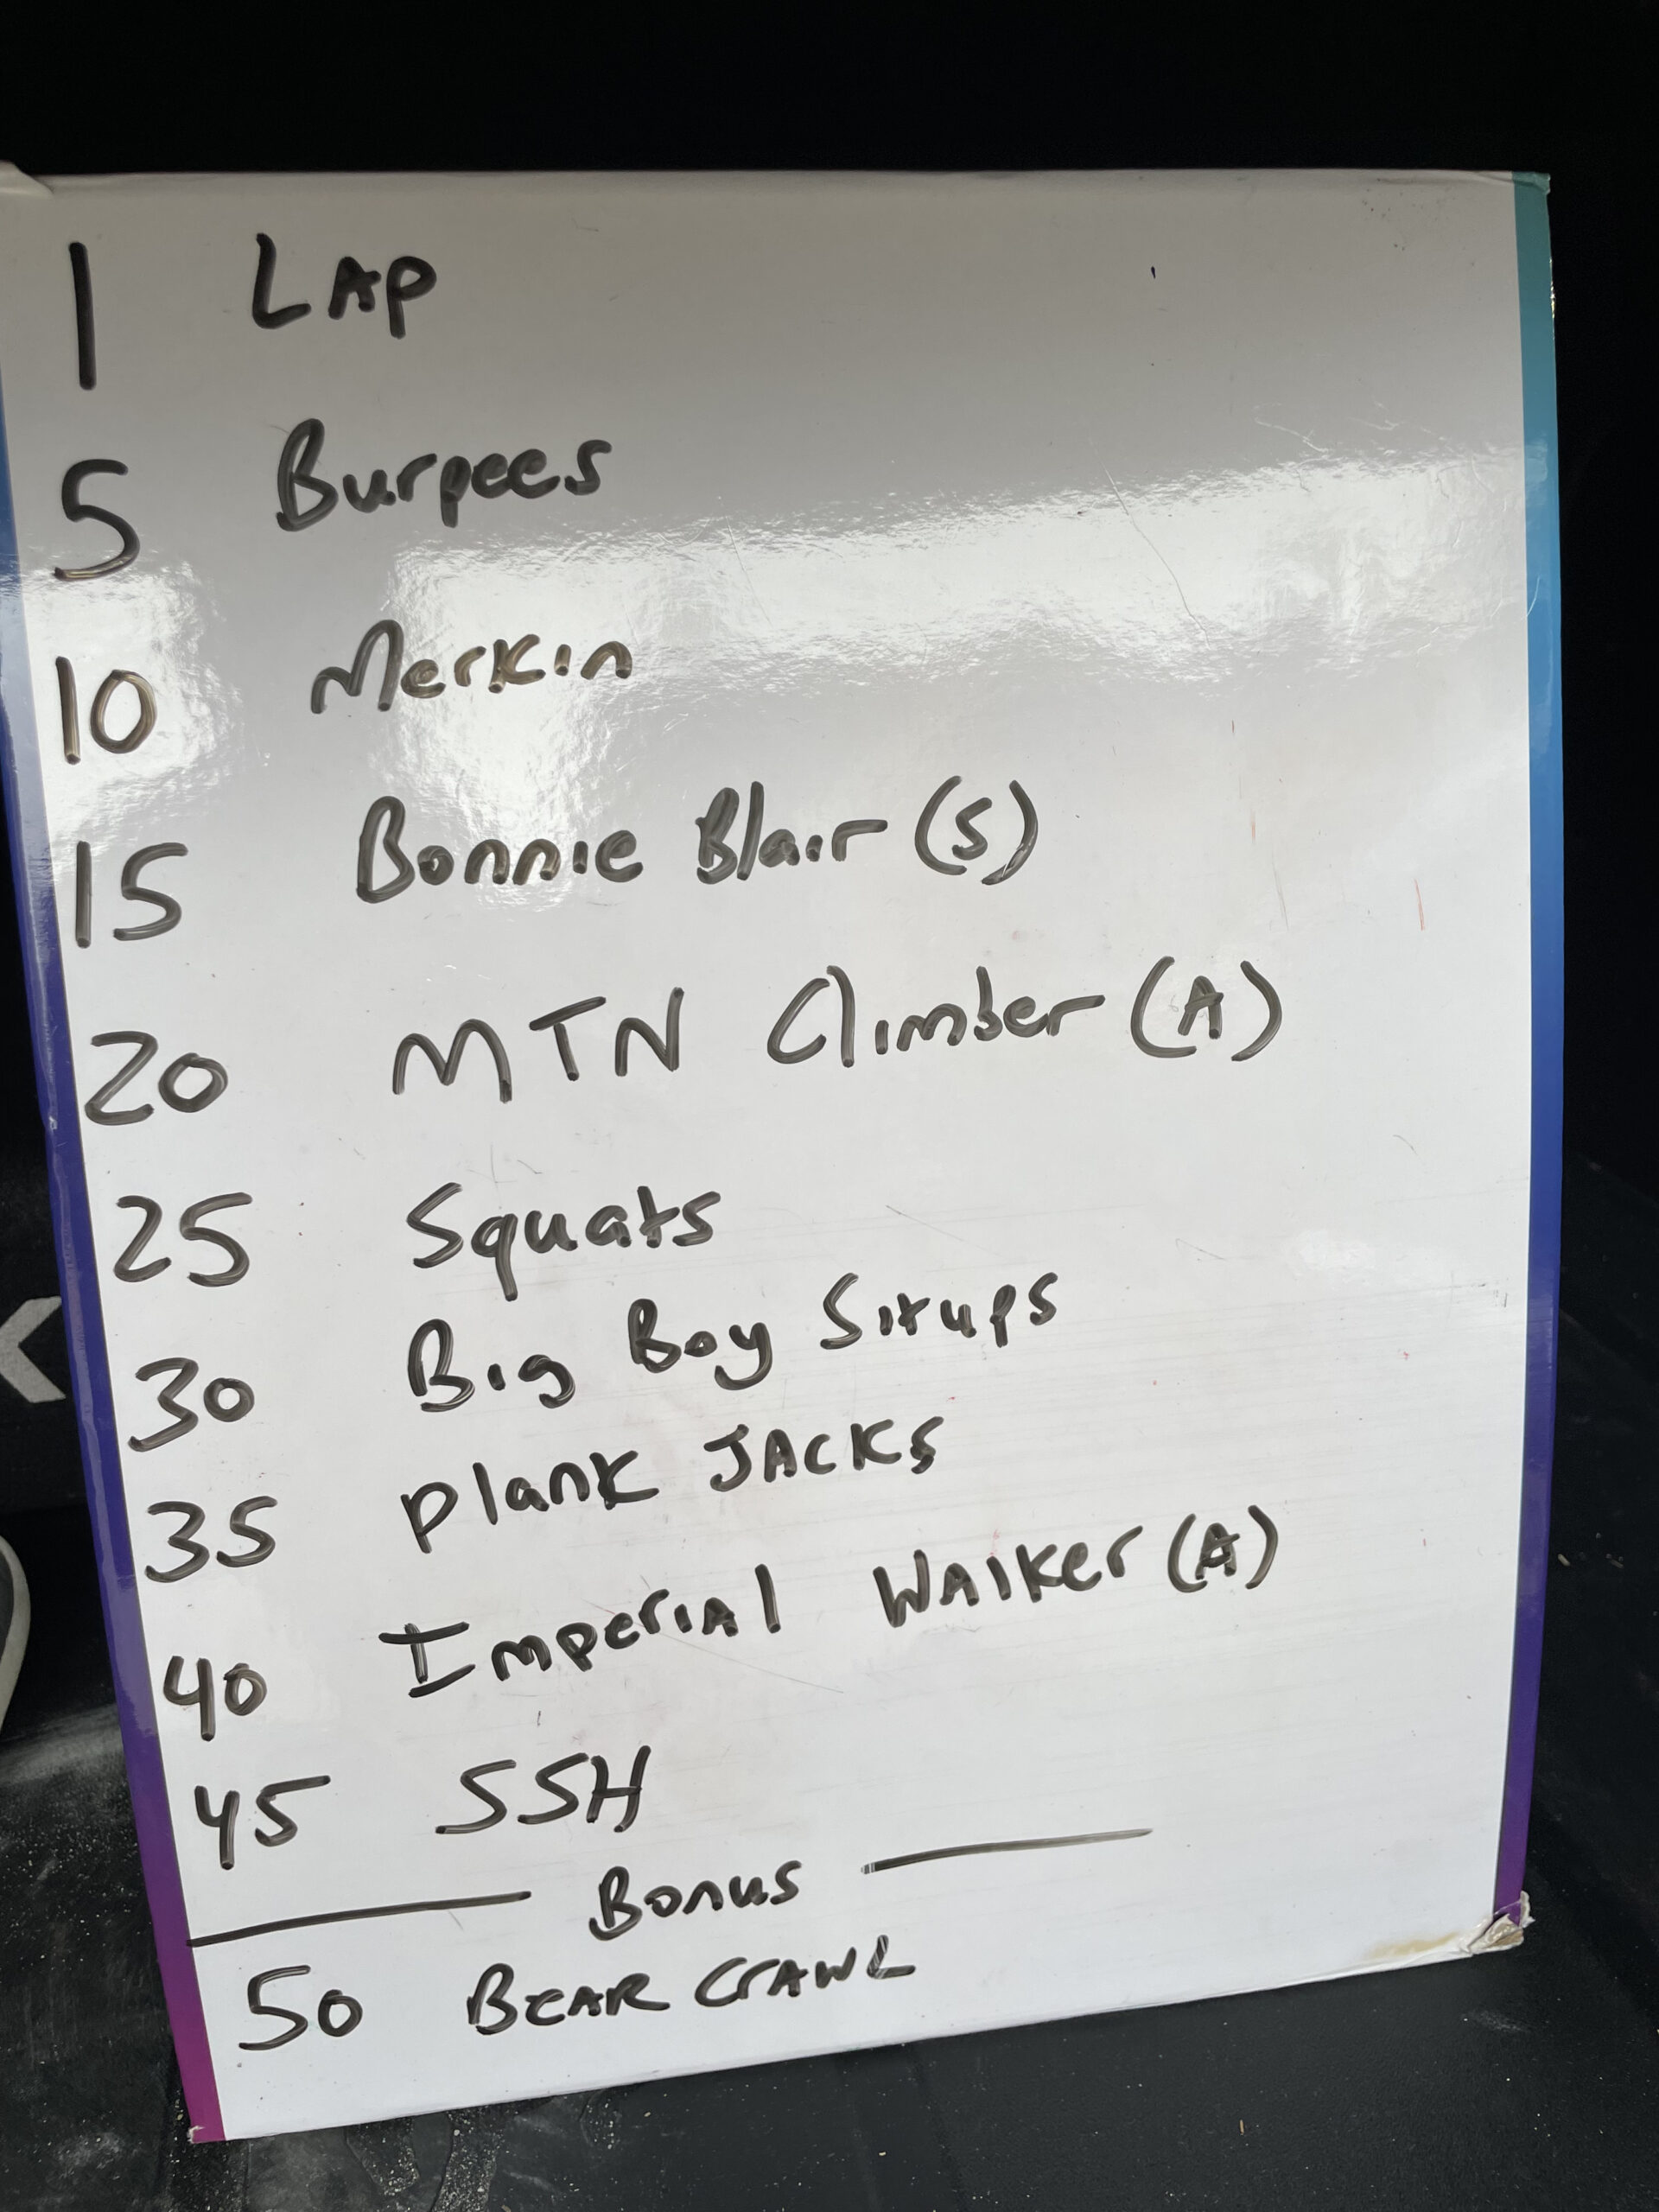 1 LAP
5 Burpees
10 Merkin
15 Bonnie Blair (S)
20 MTN Climber (A)
25 Squats
30 Big Boy Situps
35 Plank JACKS
40 Imperial Walker (A)
45 SSH
Bonus
50 BEAR CRAWL